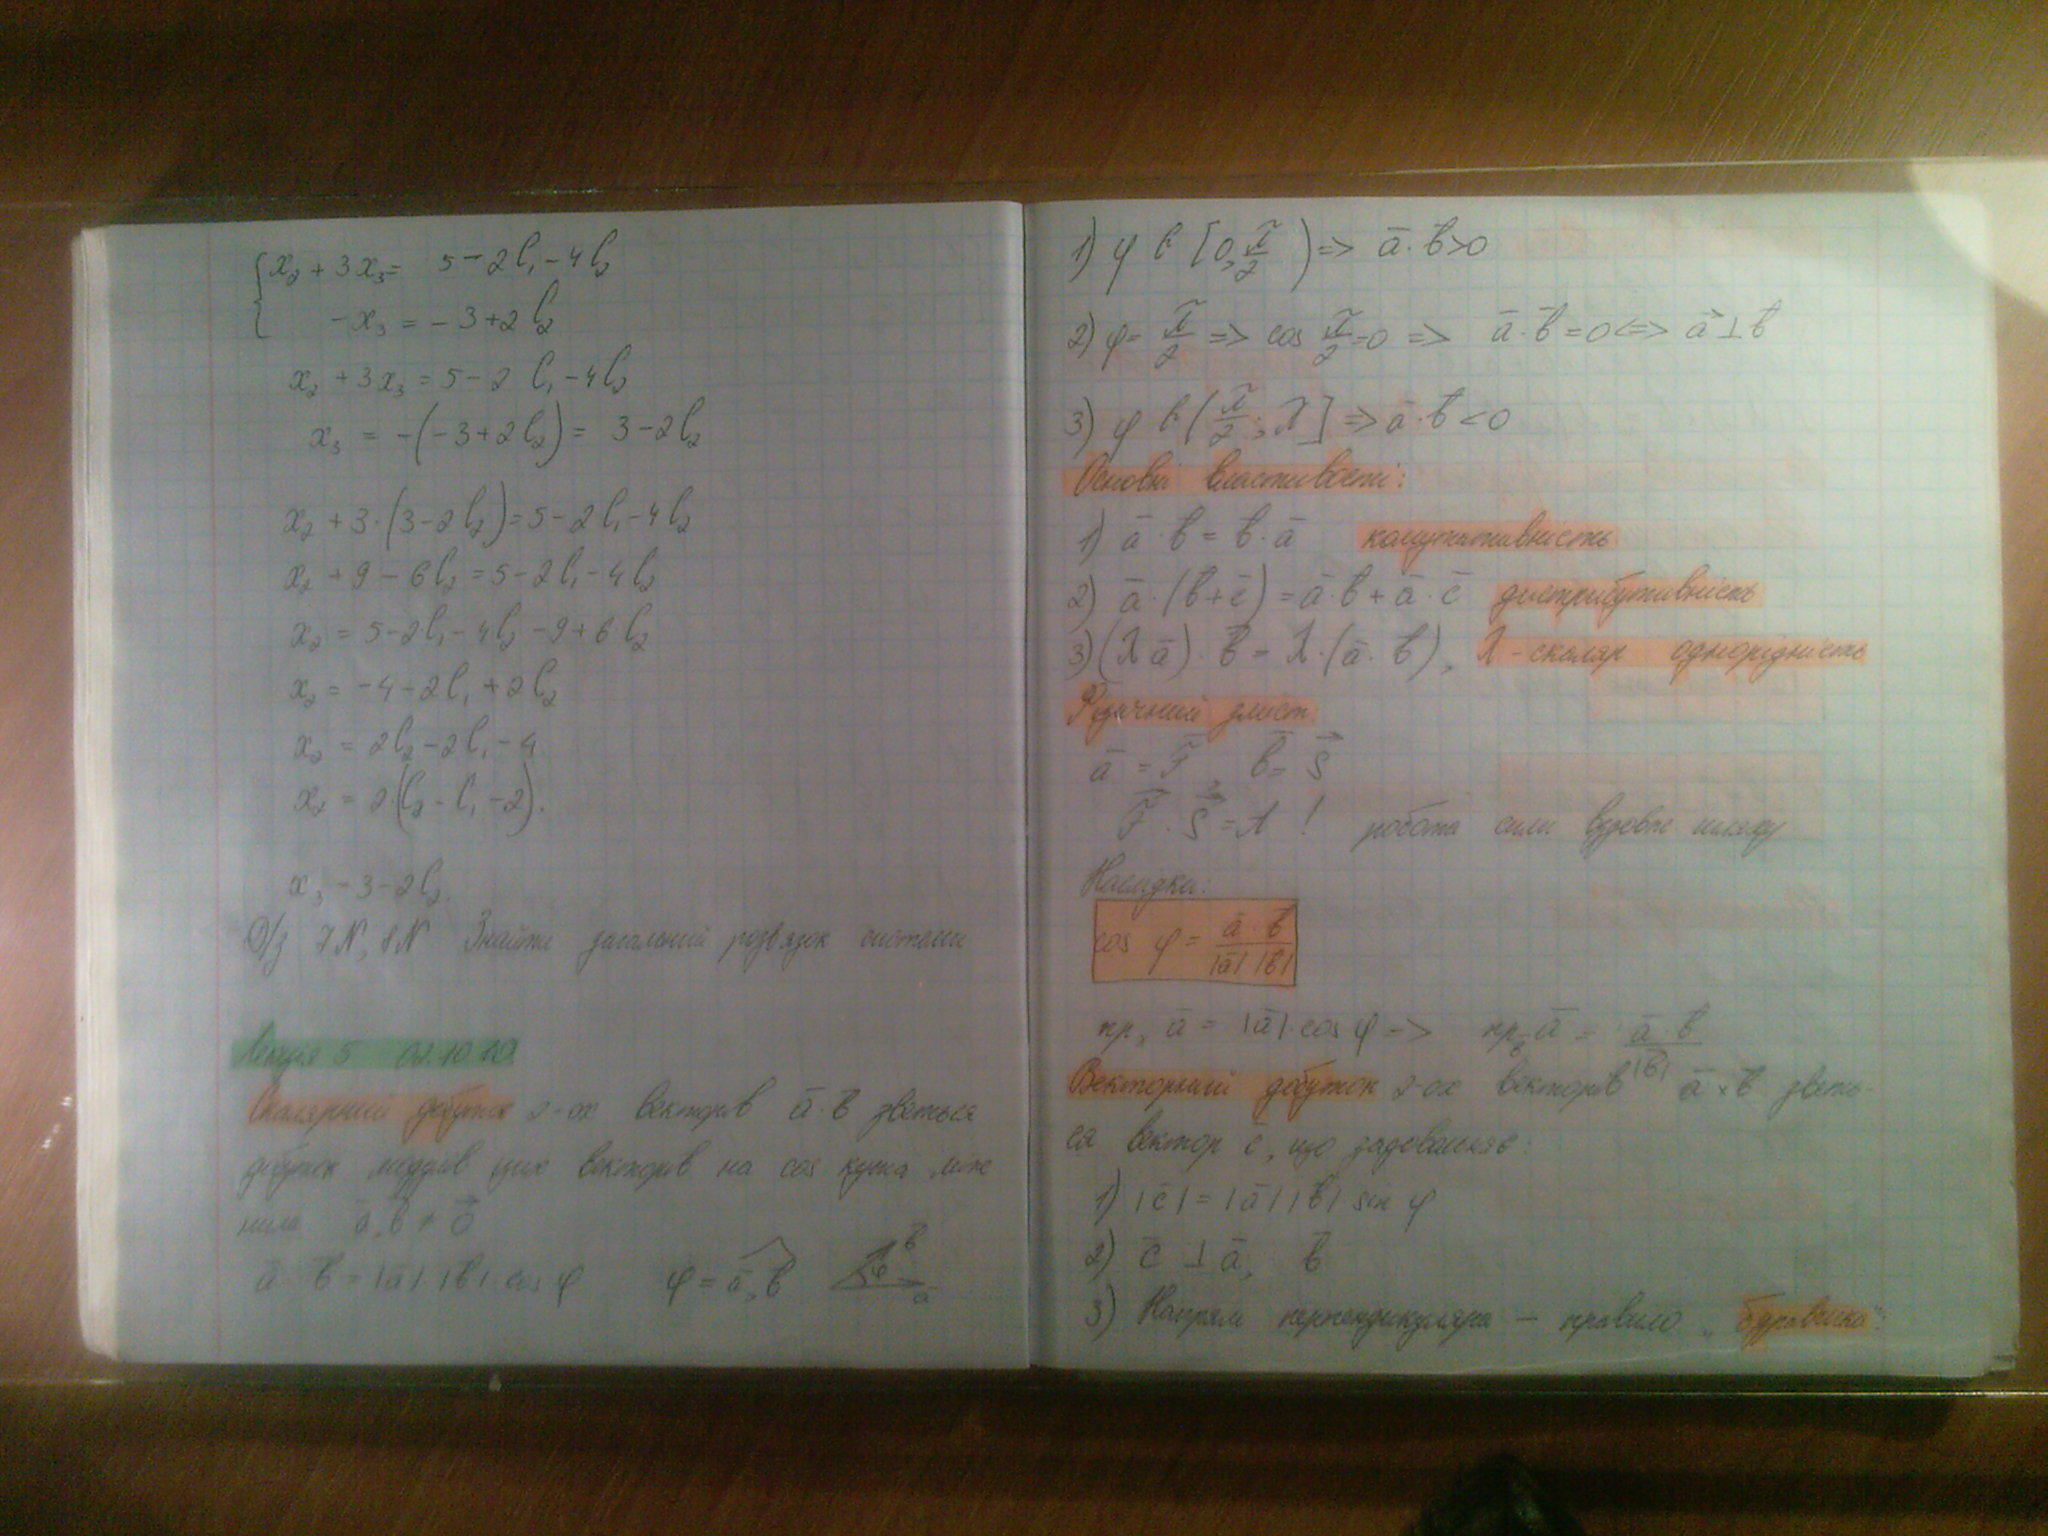 x₂ + 3x₃ = 5 - 2l₁ - 4l₂
-x₃ = -3 + 2l₂
x₂ + 3x₃ = 5 - 2l₁ - 4l₂
x₃ = -(-3 + 2l₂) = 3 - 2l₂
x₂ + 3·(3 - 2l₂) = 5 - 2l₁ - 4l₂
x₂ + 9 - 6l₂ = 5 - 2l₁ - 4l₂
x₂ = 5 - 2l₁ - 4l₂ - 9 + 6l₂
x₂ = -4 - 2l₁ + 2l₂
x₂ = 2l₂ - 2l₁ - 4
x₂ = 2·(l₂ - l₁ - 2).
x₃ - 3 - 2l₂.
Д/з 7N, 8N Знайти загальний розв'язок системи
Лекція 5
Скалярний добуток 2-ох векторів a̅·b̅ зветься
добуток модулів цих векторів на cos кута між
ними a̅, b̅ ≠ 0⃗
a̅ b̅ = |a̅| |b̅| cos φ φ = a̅, b̅ b φ a
1) φ ∈ [0, π/2) => a̅·b̅ > 0
2) φ = π/2 => cos π/2 = 0 => a̅·b̅ = 0 <=> a⃗ ⊥ b⃗
3) φ ∈ (π/2; π] => a̅·b̅ < 0
Основні властивості:
1) a̅·b̅ = b̅·a̅ комутативність
2) a̅·(b̅+c̅) = a̅·b̅ + a̅·c̅ дистрибутивність
3) (λa̅)·b̅ = λ·(a̅·b̅), λ - скаляр однорідність
Фізичний зміст:
a̅ = F⃗, b̅ = S⃗
F⃗·S⃗ = A! робота сили вздовж шляху
Наслідки:
cos φ = a̅·b̅ / |a̅| |b̅|
пр_b a̅ = |a̅|·cos φ => пр_b a̅ = a̅·b̅ / |b̅|
Векторний добуток 2-ох векторів a̅ × b̅ зветь-
ся вектор c̅, що задовольняє:
1) |c̅| = |a̅| |b̅| sin φ
2) c̅ ⊥ a̅, b̅
3) Напрям перпендикуляра — правило „бдравчика"